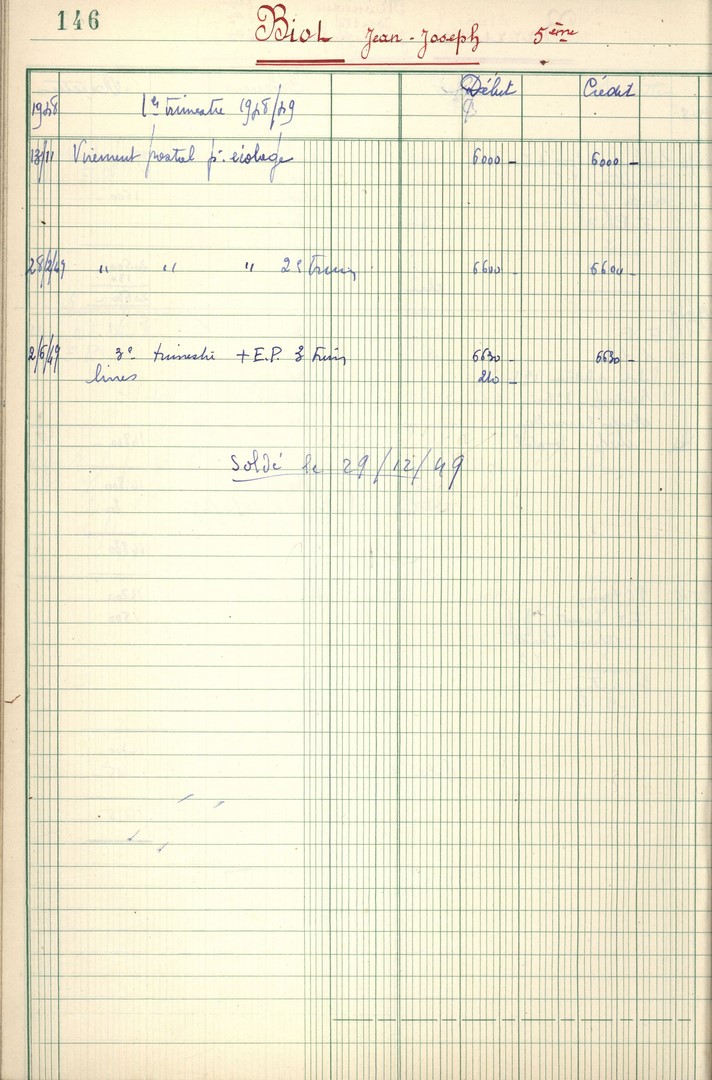 146 Biot Jean-Joseph 5ème
1948 1er trimestre 1948/49 Débit Crédit
13/11 Virement postal pr. écolage 6000 - 6000 -
28/2/49 " " " 2e trim 6600 - 6600 -
2/6/49 3e trimestre + E.P. 3 trim 6630 - 6630 -
livres 210 -
Soldé le 29/12/49